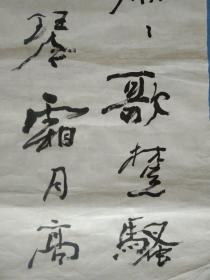 〻歌楚騷
琴霜月高